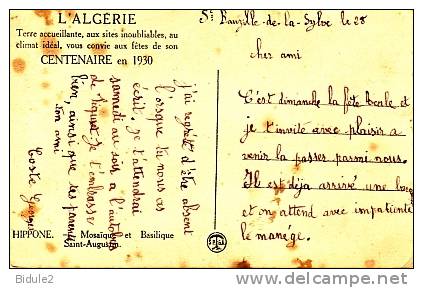 L'ALGÉRIE
Terre accueillante, aux sites inoubliables, au
climat idéal, vous convie aux fêtes de son
CENTENAIRE en 1930
St Bauzille-de-la-Sylve le 28
cher ami
C'est dimanche la fête locale et
je t'invite avec plaisir a
venir la passer parmi nous.
Il est déja arrivé une
et on attend avec impatience
le manège.
j'ai regrété d'être absent
lorsque tu nous as
écrit. je t'attendrai
samedi au soir a l'autobus
de Je t'embrasse
bien, ainsi que tes parents
ton ami
Coste Georges
HIPPONE. Mosaïque et Basilique
Saint-Augustin.
Bidule2
delcampe.net